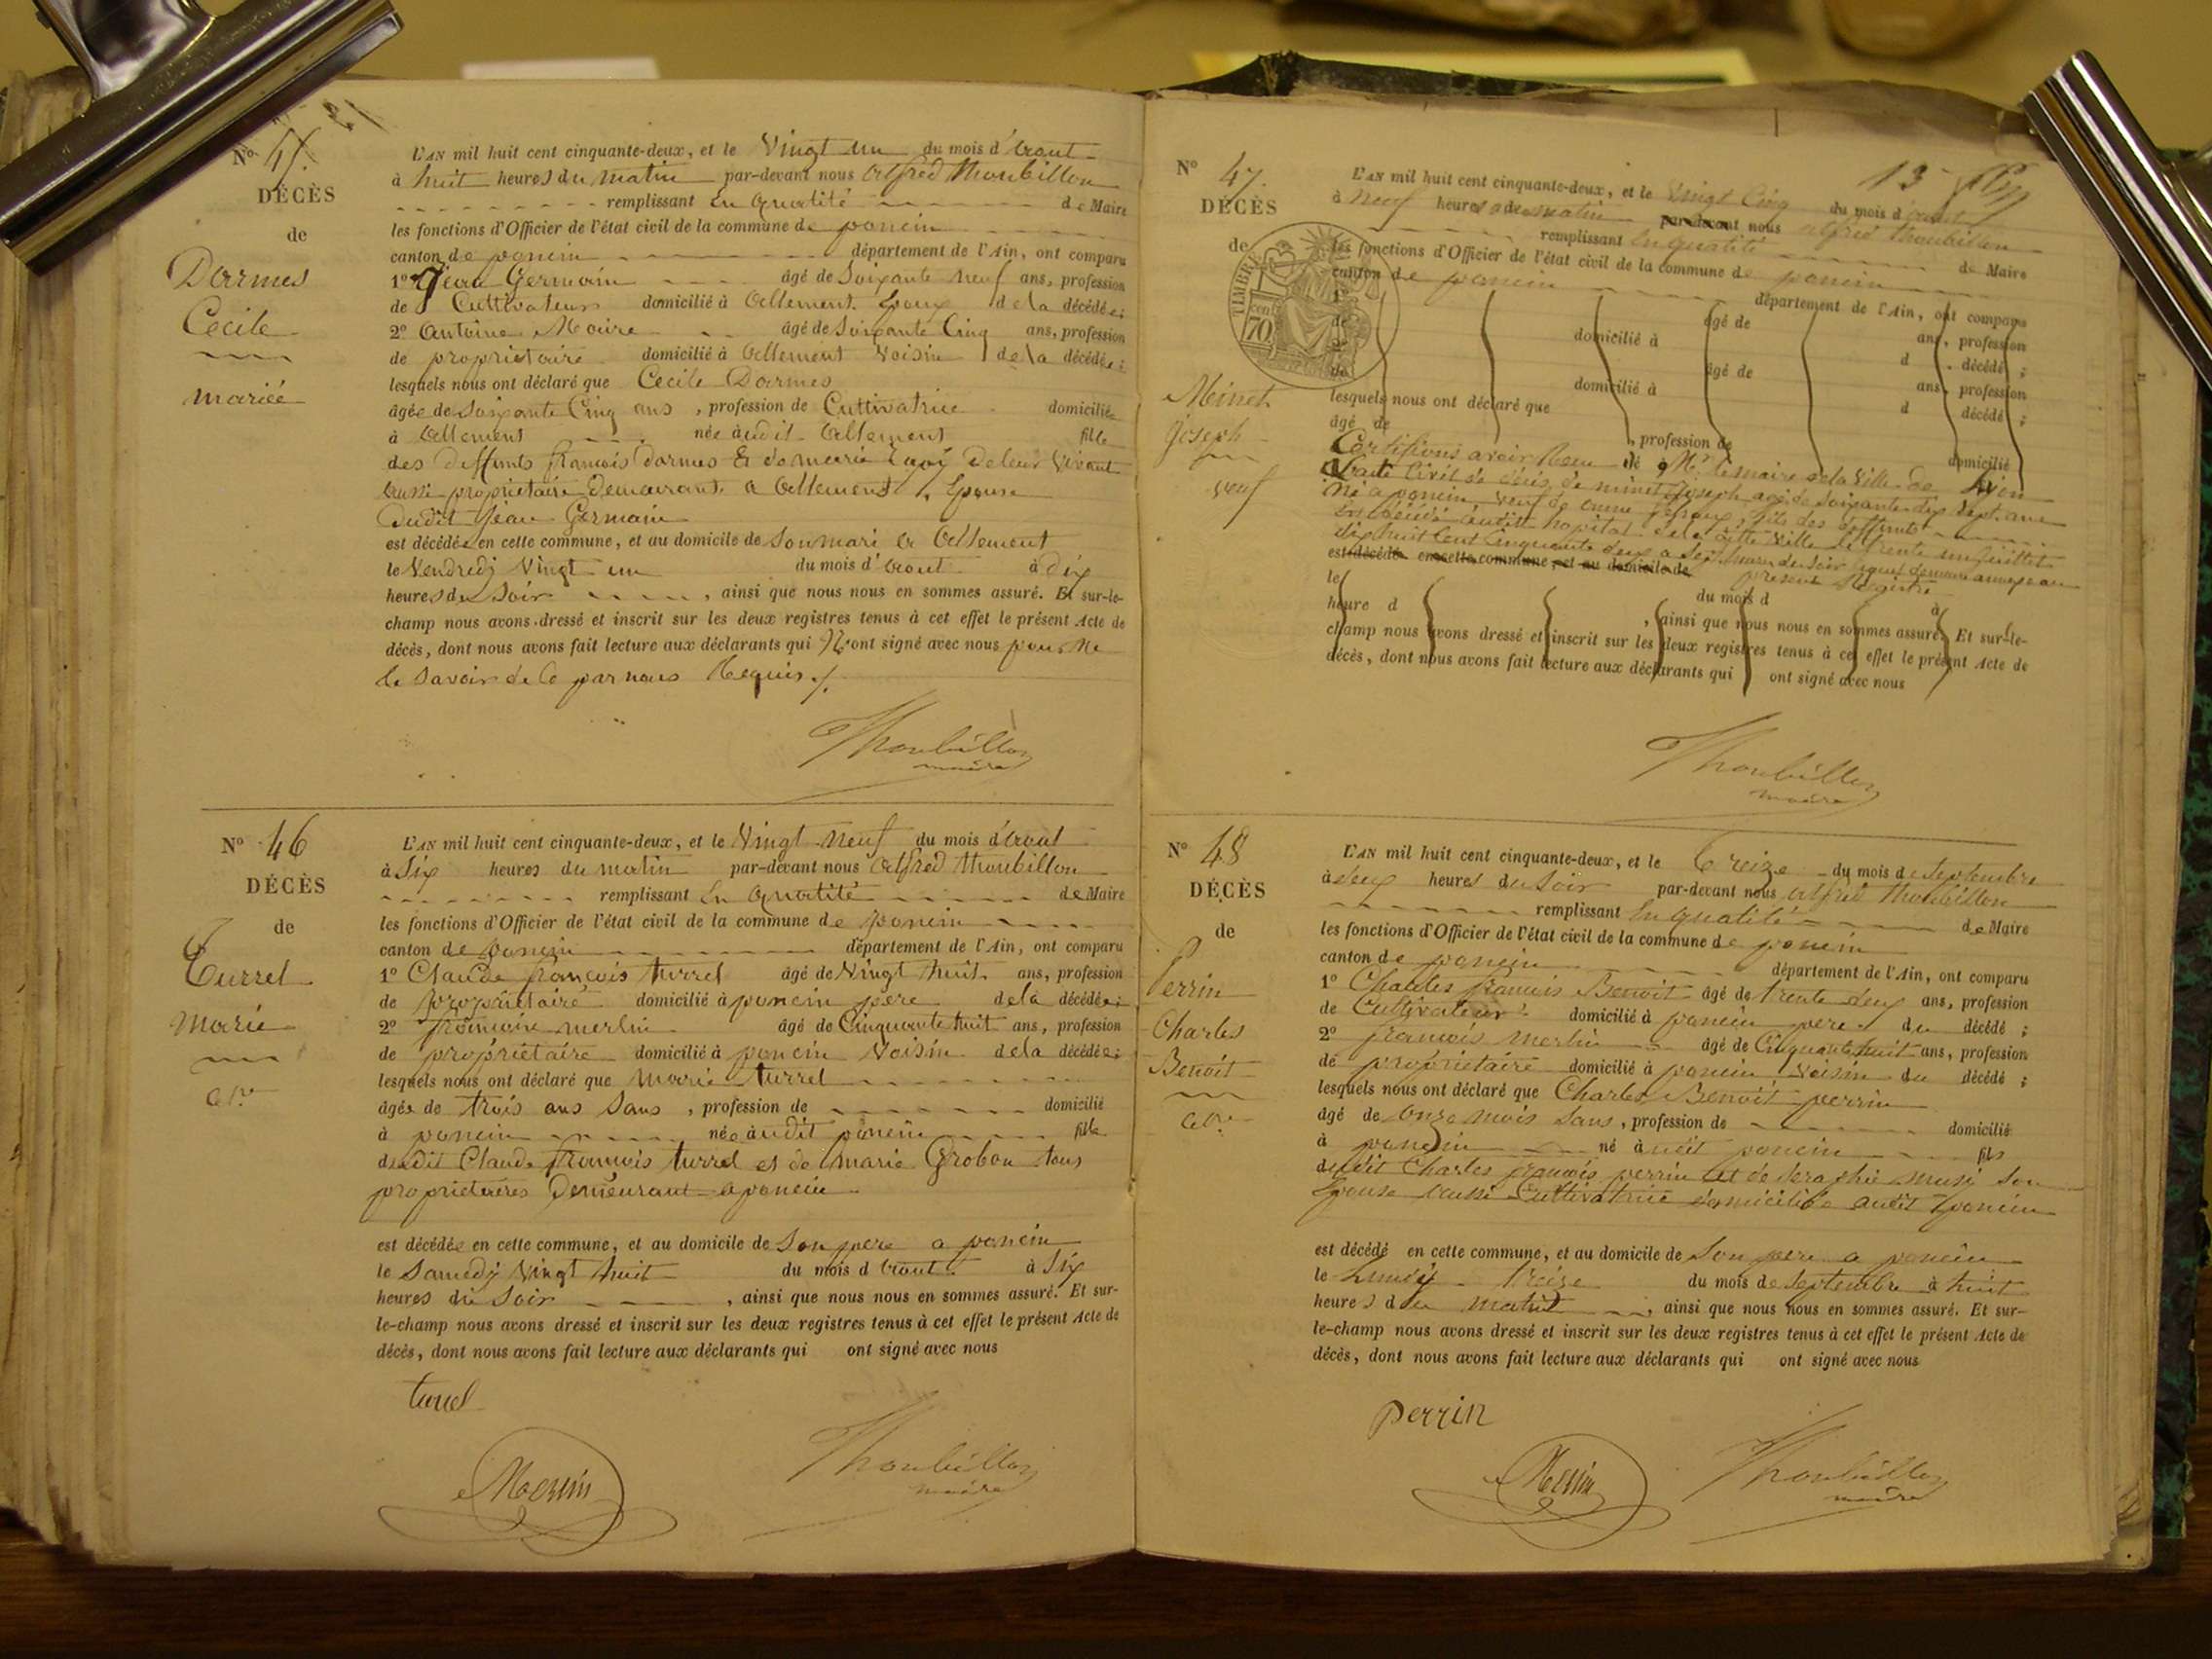 N° 45.
DÉCÈS
de
Darmes
Cecile
mariée
L'AN mil huit cent cinquante-deux, et le Vingt un du mois d'Aout
à huit heures du matin par-devant nous Alfred Thoubillon
remplissant En qualité de Maire
les fonctions d'Officier de l'état civil de la commune de poncin
canton de poncin département de l'Ain, ont comparu
1° Jean Germain âgé de Soixante neuf ans, profession
de Cultivateur domicilié à Allement Epoux de la décédée;
2° Antoine Maire âgé de Soixante Cinq ans, profession
de proprietaire domicilié à Allement Voisin de la décédée;
lesquels nous ont déclaré que Cecile Darmes
âgée de Soixante Cinq ans, profession de Cultivatrice domiciliée
à Allement née audit Allement fille
des deffunts francois Darmes & de marie De leur Vivant
Aussi proprietaire Demeurant a Allement, Epouse
Dudit Jean Germain
est décédée en cette commune, et au domicile de Son mari a Allement
le Vendredi Vingt un du mois d'Aout à dix
heures du Soir, ainsi que nous nous en sommes assuré. Et sur-le-
champ nous avons dressé et inscrit sur les deux registres tenus à cet effet le présent Acte de
décès, dont nous avons fait lecture aux déclarants qui N'ont signé avec nous pour Ne
le Savoir de Ce par nous Requis ./.
Thoubillon
maire
N° 46
DÉCÈS
de
Turrel
Marie
L'AN mil huit cent cinquante-deux, et le Vingt Neuf du mois d'Aout
à Six heures du matin par-devant nous Alfred Thoubillon
remplissant En qualité de Maire
les fonctions d'Officier de l'état civil de la commune de poncin
canton de poncin département de l'Ain, ont comparu
1° Claude francois turrel âgé de Vingt huit ans, profession
de proprietaire domicilié à poncin pere de la décédée;
2° francois merlin âgé de Cinquante huit ans, profession
de propriétaire domicilié à poncin Voisin de la décédée;
lesquels nous ont déclaré que Marie turrel
âgée de trois ans Sans, profession de domicilié
à poncin née audit poncin fille
dudit Claude francois turrel et de marie Grobon tous
proprietaires Demeurant a poncin
est décédée en cette commune, et au domicile de Son pere a poncin
le Samedi Vingt huit du mois d Aout à Six
heures du Soir, ainsi que nous nous en sommes assuré. Et sur-
le-champ nous avons dressé et inscrit sur les deux registres tenus à cet effet le présent Acte de
décès, dont nous avons fait lecture aux déclarants qui ont signé avec nous
turrel
Merlin
Thoubillon
maire
13
N° 47.
DÉCÈS
de
TIMBRE
70
Minet
Joseph
veuf
L'AN mil huit cent cinquante-deux, et le Vingt Cinq du mois d'aout
à Neuf heures du matin par-devant nous alfred Thoubillon
remplissant En qualité de Maire
les fonctions d'Officier de l'état civil de la commune de poncin
canton de poncin département de l'Ain, ont comparu
1° âgé de ans, profession
de domicilié à d décédé;
2° âgé de ans, profession
de domicilié à d décédé;
lesquels nous ont déclaré que
âgé de, profession de domicilié
Certifions avoir Recu de Mr le maire de la Ville de Lyon
L'acte Civil de décés de minet Joseph agé de Soixante dix Sept ans
Né a poncin veuf de anne fils des deffunts
décédé audit hopital de la dite Ville le trente un Juillet
dix huit Cent Cinquante deux a Sept heures du Soir lequel demeure annexé au
present Registre
est décédé en cette commune, et au domicile de
le du mois d à
heure d, ainsi que nous nous en sommes assuré. Et sur-le-
champ nous avons dressé et inscrit sur les deux registres tenus à cet effet le présent Acte de
décès, dont nous avons fait lecture aux déclarants qui ont signé avec nous
Thoubillon
maire
N° 48
DÉCÈS
de
Perrin
Charles
Benoit
L'AN mil huit cent cinquante-deux, et le treize du mois de Septembre
à deux heures du Soir par-devant nous alfred Thoubillon
remplissant En qualité de Maire
les fonctions d'Officier de l'état civil de la commune de poncin
canton de poncin département de l'Ain, ont comparu
1° Charles francois Benoit âgé de trente deux ans, profession
de Cultivateur domicilié à poncin pere du décédé;
2° francois merlin âgé de Cinquante huit ans, profession
de proprietaire domicilié à poncin Voisin du décédé;
lesquels nous ont déclaré que Charles Benoit perrin
âgé de onze mois Sans, profession de domicilié
à poncin né audit poncin fils
dudit Charles francois perrin et de Seraphie Son
Epouse aussi Cultivatrice domiciliée audit poncin
est décédé en cette commune, et au domicile de Son pere a poncin
le Lundi treize du mois de Septembre à huit
heures du matin, ainsi que nous nous en sommes assuré. Et sur-
le-champ nous avons dressé et inscrit sur les deux registres tenus à cet effet le présent Acte de
décès, dont nous avons fait lecture aux déclarants qui ont signé avec nous
perrin
Merlin
Thoubillon
maire